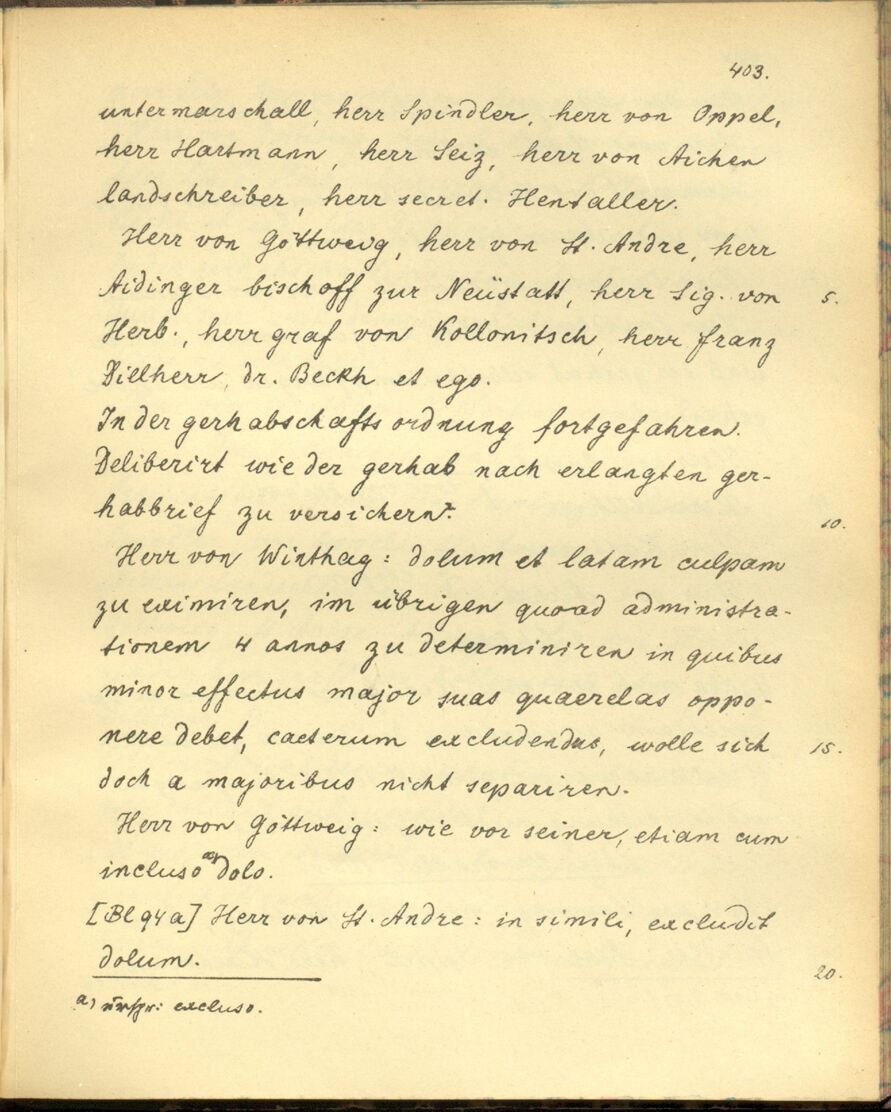 403.
untermarschall, herr Spindler, herr von Oppel,
herr Hartmann, herr Seiz, herr von Aichen
landschreiber, herr secret. Hentaller.
Herr von Göttweig, herr von St. Andre, herr
Aidinger bischoff zur Neüstatt, herr Sig. von 5.
Herb., herr graf von Kollonitsch, herr franz
Dillherr, dr. Beckh et ego.
In der gerhabschafts ordnung fortgefahren.
Deliberirt wie der gerhab nach erlangten ger-
habbrief zu versichern. 10.
Herr von Winthag: dolum et latam culpam
zu eximiren, im übrigen quoad administra-
tionem 4 annos zu determiniren in quibus
minor effectus major suas quaerelas oppo-
nere debet, caeterum excludendus, wolle sich 15.
doch a majoribus nicht separiren.
Herr von Göttweig: wie vor seiner, etiam cum
incluso a) dolo.
[Bl 94a] Herr von St. Andre: in simili, excludit
dolum. 20.
a) urspr: excluso.